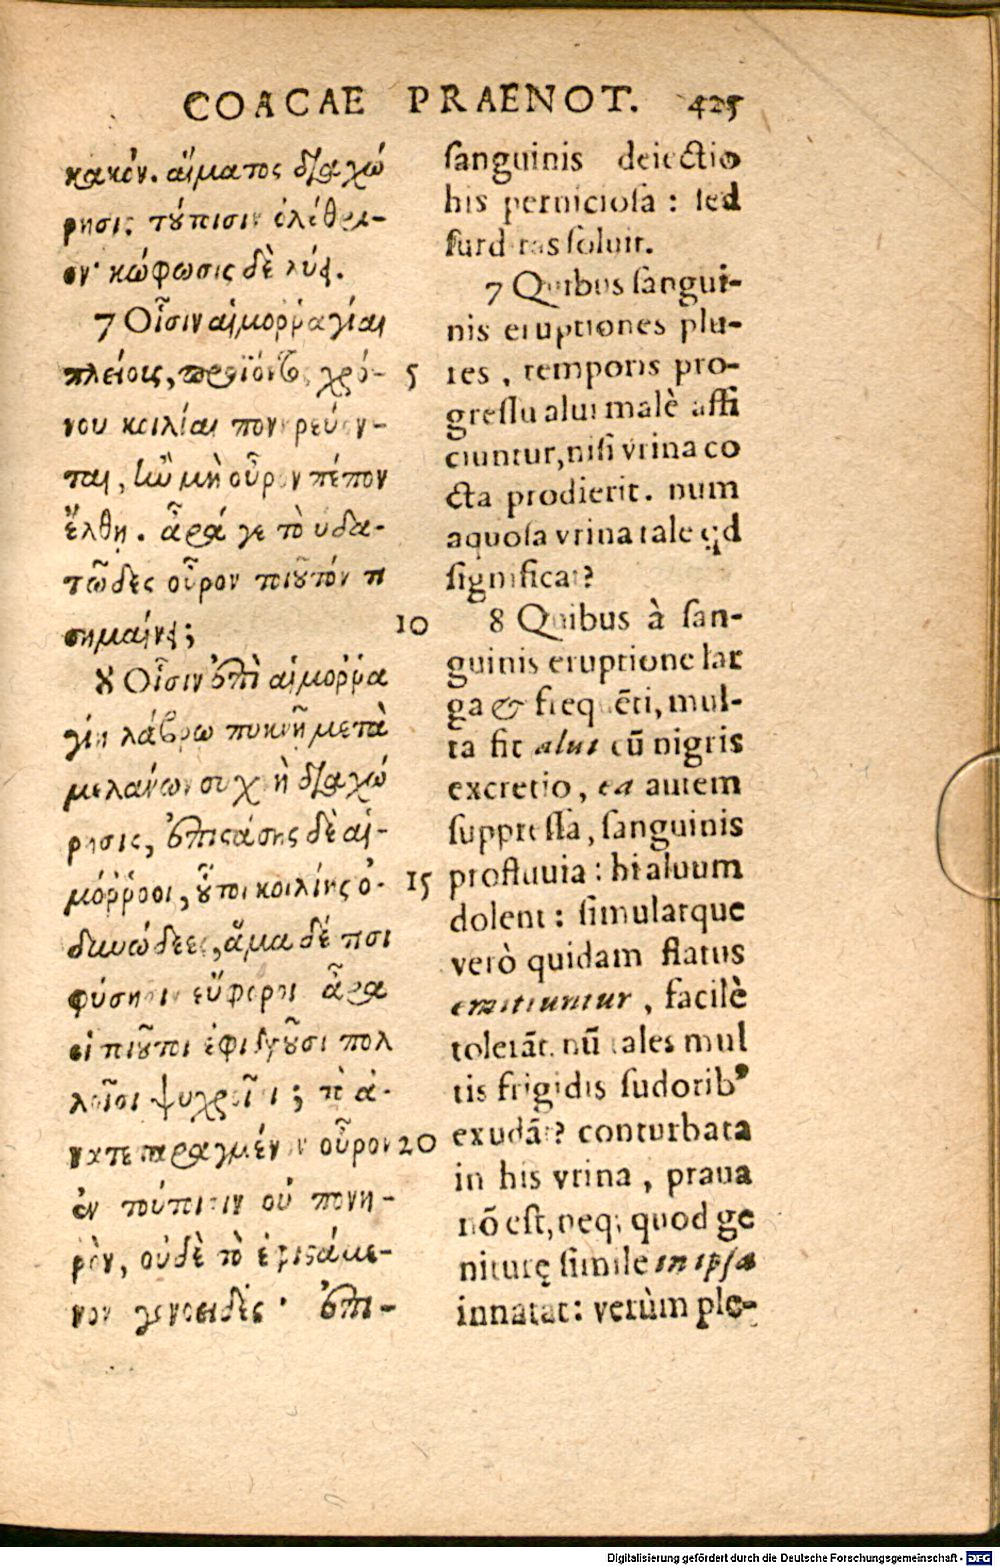 COACAE PRAENOT. 425
κακόν. αἵματος διαχώ
ρησις τούτοισιν ὀλέθρι-
ον· κώφωσις δὲ λύει.
7 Οἷσιν αἱμοῤῥαγίαι
πλείους, προϊόντος χρό- 5
νου κοιλίαι πονηρεύον-
ται, ἢν μὴ οὖρον πέπον
ἔλθη. ἆρά γε τὸ ὑδα-
τῶδες οὖρον τοιοῦτόν τι
σημαίνει; 10
8 Οἷσιν ἐπὶ αἱμοῤῥα
γίῃ λάβρῳ πυκνῇ μετὰ
μελάνων συχνὴ διαχώ
ρησις, ἐπιστάσης δὲ αἱ-
μόῤῥοοι, οὗτοι κοιλίης ὀ- 15
δυνώδεες, ἅμα δέ τισι
φύσησιν εὔφοροι ἆρα
οἱ τοιοῦτοι ἐφιδροῦσι πολ
λοῖσι ψυχροῖσι; τὸ ἀ-
νατεταραγμένον οὖρον 20
ἐν τούτοισιν οὐ πονη-
ρὸν, οὐδὲ τὸ ἐφιστάμε-
νον γονοειδὲς· ἐπι-
sanguinis deiectio
his perniciosa: sed
surditas soluit.
7 Quibus sangui-
nis eruptiones plu-
res, temporis pro-
gressu alui malè affi
ciuntur, nisi vrina co
cta prodierit. num
aquosa vrina tale qd
significat?
8 Quibus à san-
guinis eruptione lar
ga & frequẽti, mul-
ta fit alui cũ nigris
excretio, ea autem
suppressa, sanguinis
profluuia: hi aluum
dolent: simulatque
verò quidam flatus
emittuntur, facilè
tolerãt. nũ tales mul
tis frigidis sudoribꝰ
exudãt? conturbata
in his vrina, praua
nõ est, neq; quod ge
niturę simile in ipsa
innatat: verùm ple-
Digitalisierung gefördert durch die Deutsche Forschungsgemeinschaft - DFG